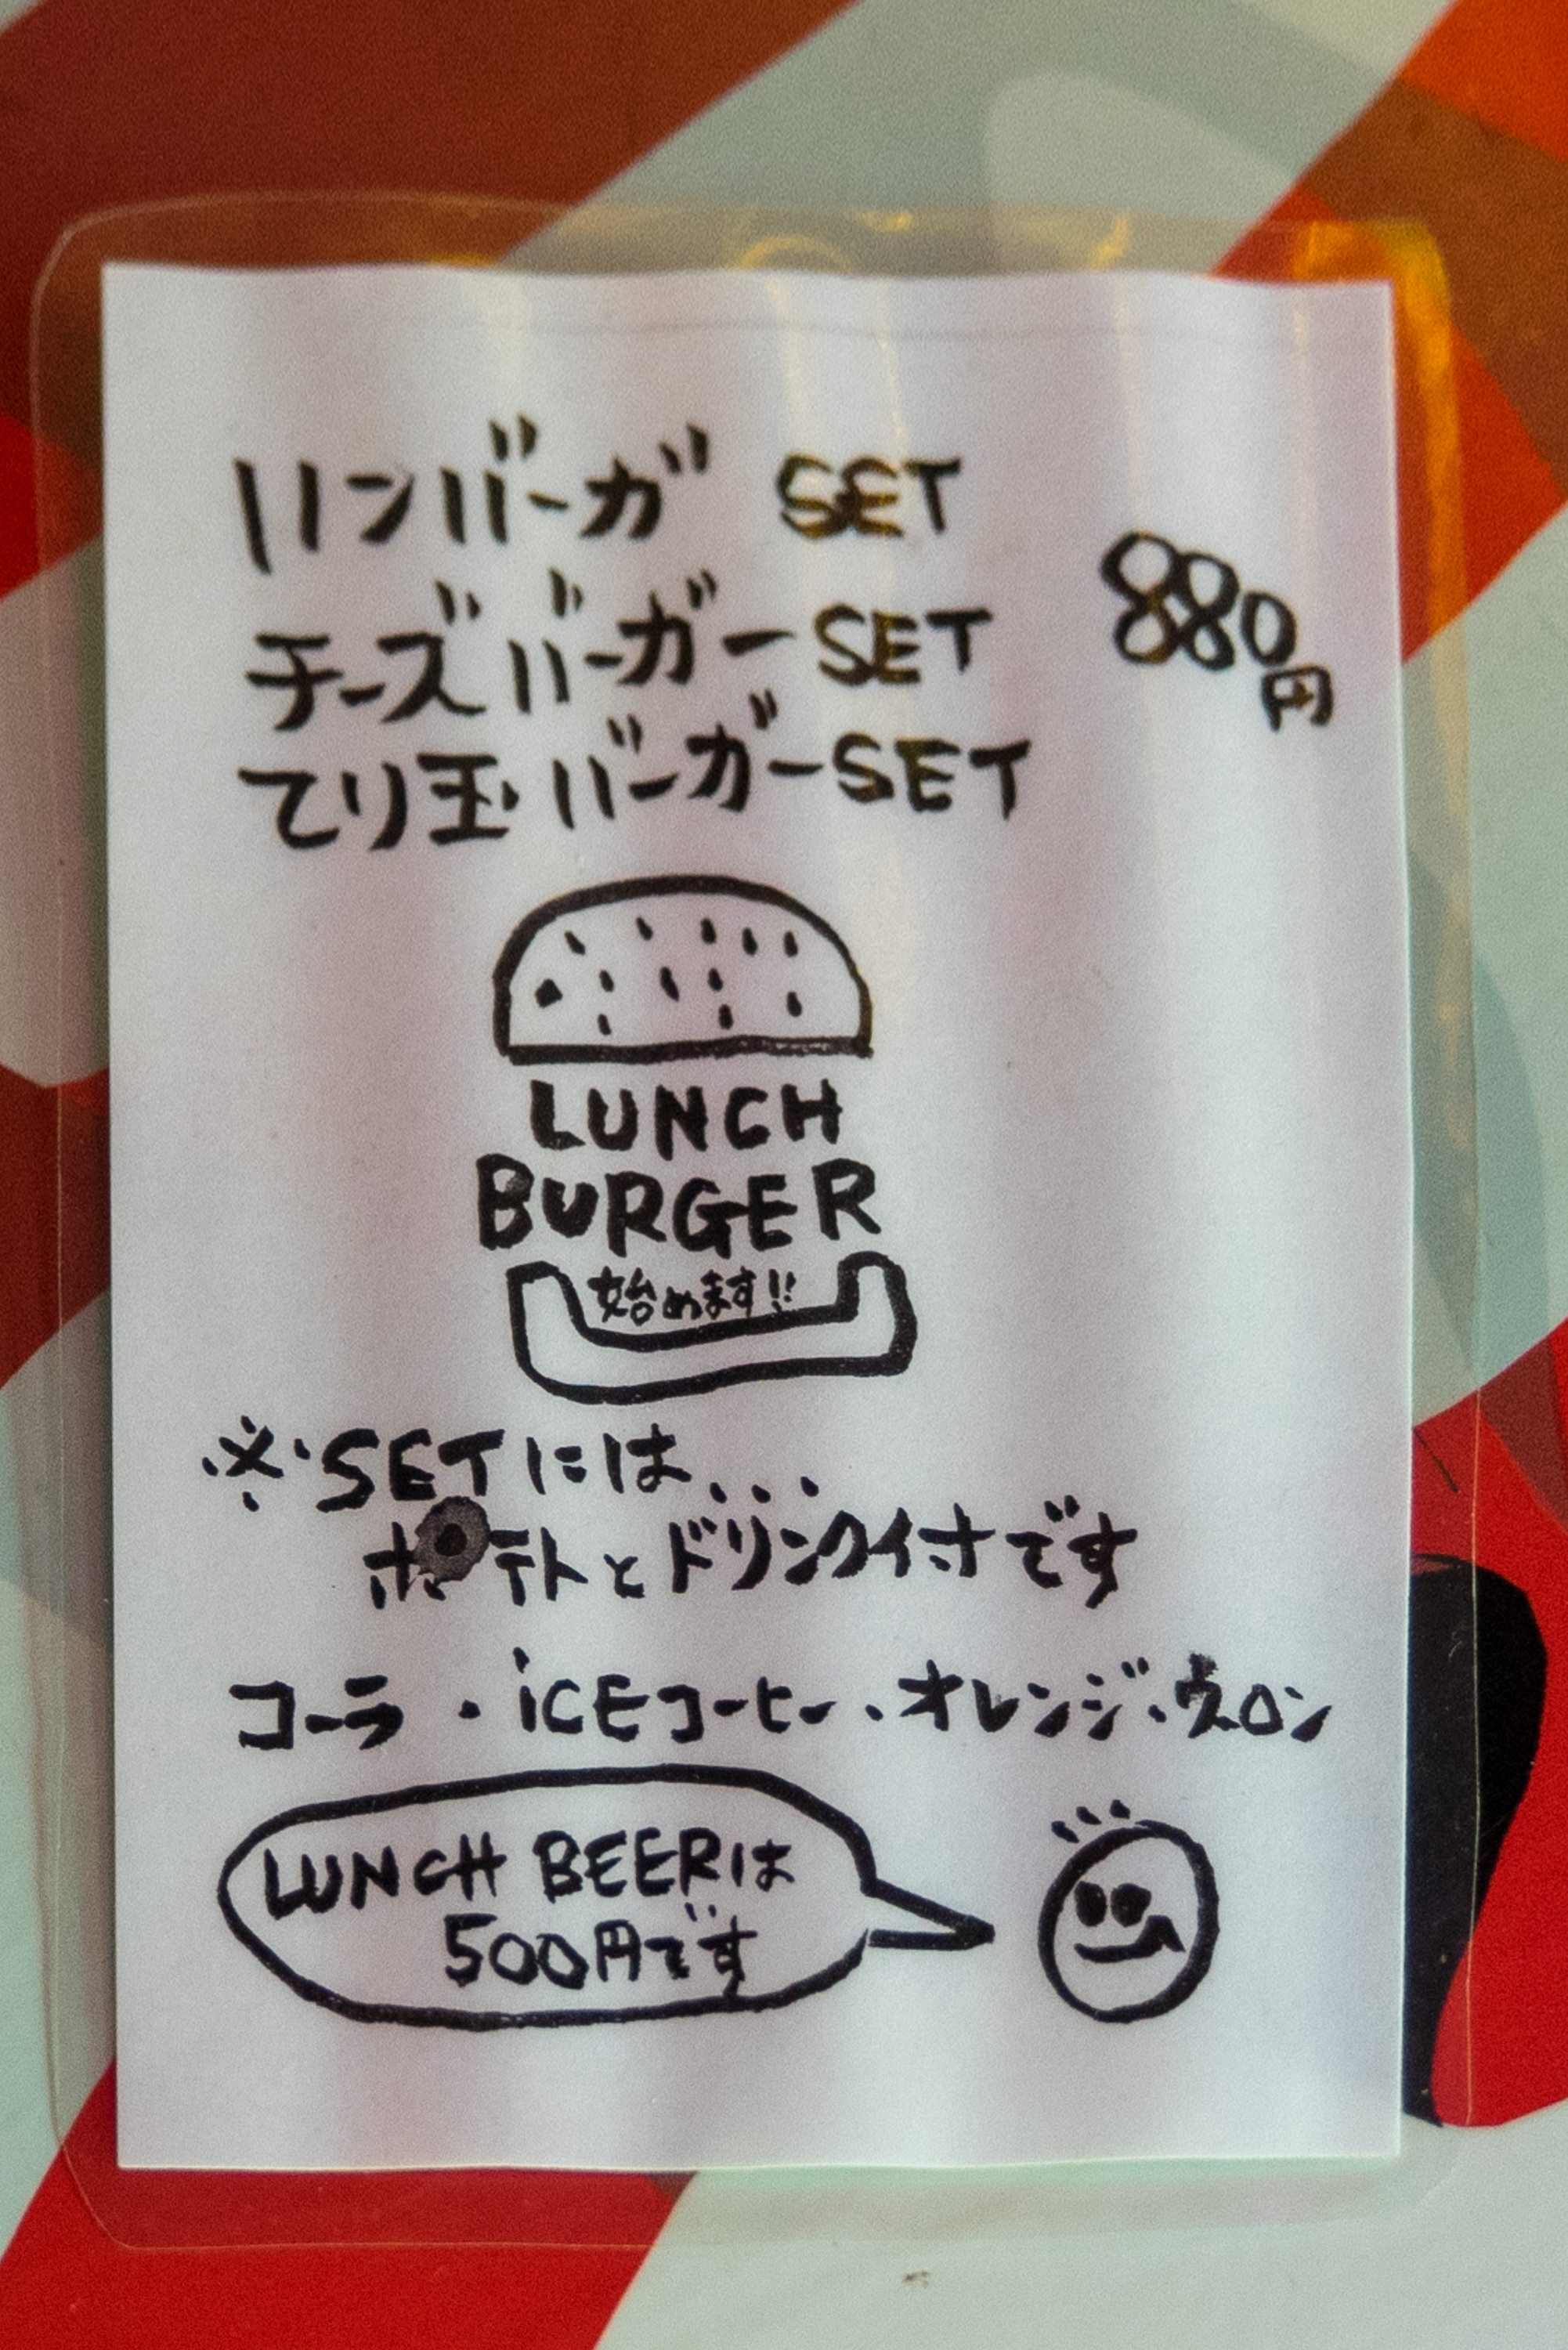 ハンバーガ SET
880円
チーズバーガーSET
てり玉バーガーSET
LUNCH
BURGER
始めます!!
※SETには...
ポテトとドリンク付です
コーラ・iCEコーヒー・オレンジ・ウーロン
LUNCH BEERは
500円です